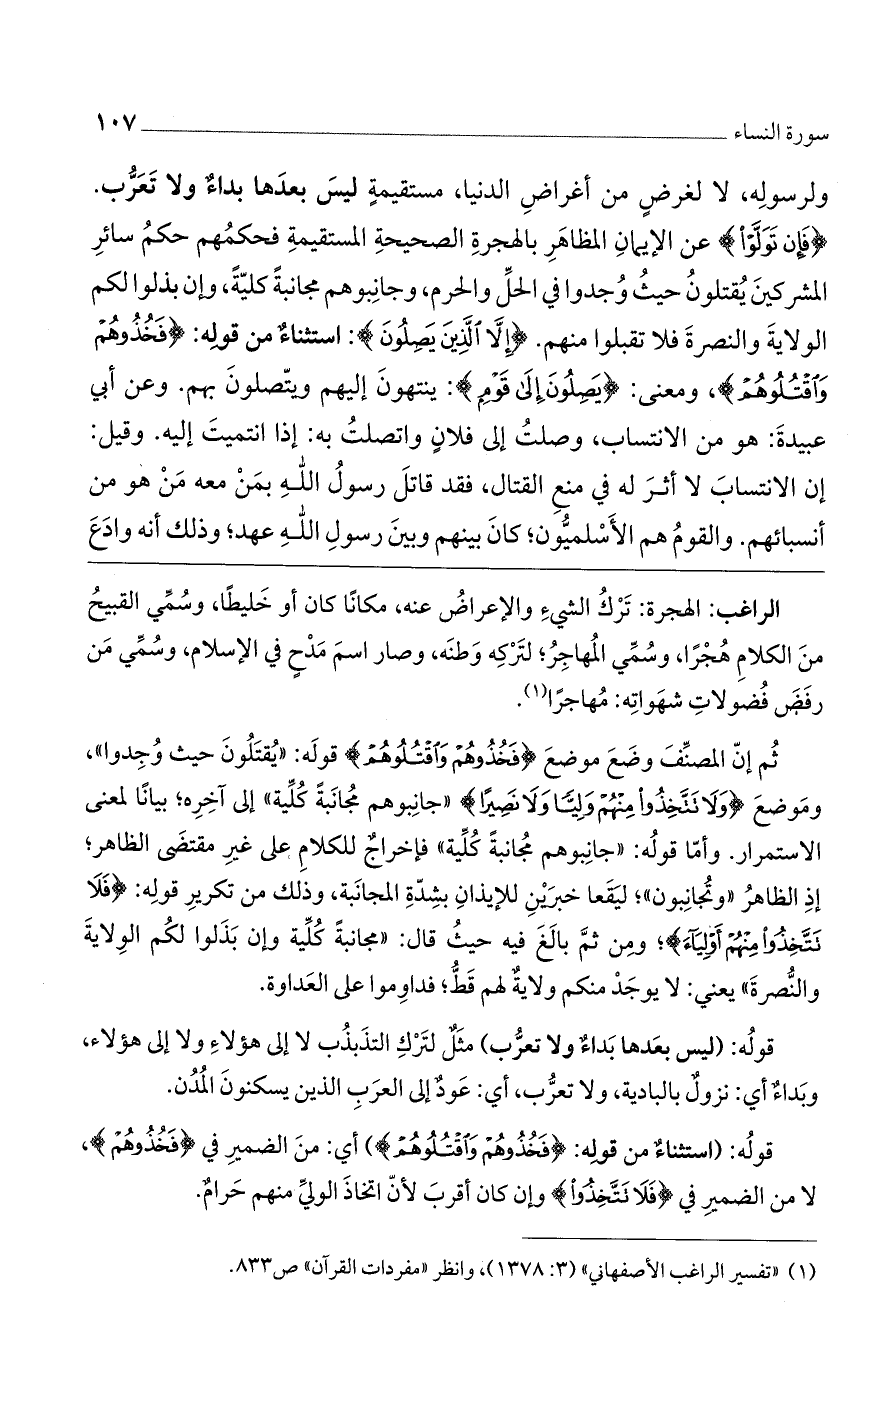 سورة النساء ١٠٧
ولرسولِه، لا لغرضٍ من أغراضِ الدنيا، مستقيمةٍ ليسَ بعدَها بداءٌ ولا تَعَرُّب.
﴿فَإِن تَوَلَّوْاْ﴾ عن الإيمانِ المظاهَرِ بالهجرةِ الصحيحةِ المستقيمةِ فحكمُهم حكمُ سائرِ
المشركينَ يُقتلونُ حيثُ وُجدوا في الحلِّ والحرم، وجانِبوهم مجانبةً كليّةً، وإن بذلوا لكم
الولايةَ والنصرةَ فلا تقبلوا منهم. ﴿إِلَّا ٱلَّذِينَ يَصِلُونَ﴾: استثناءٌ من قولِه: ﴿فَخُذُوهُمْ
وَٱقْتُلُوهُمْ﴾، ومعنى: ﴿يَصِلُونَ إِلَىٰ قَوْمٍ﴾: ينتهونَ إليهم ويتّصلونَ بهم. وعن أبي
عبيدةَ: هو من الانتساب، وصلتُ إلى فلانٍ واتصلتُ به: إذا انتميتَ إليه. وقيل:
إن الانتسابَ لا أثـرَ له في منعِ القتال، فقد قاتلَ رسولُ اللَّـهِ بمَنْ معه مَنْ هو من
أنسبائهم. والقومُ هم الأَسْلميُّون؛ كانَ بينهم وبينَ رسولِ اللَّـهِ عهد؛ وذلك أنه وادَعَ
الراغب: الهجرة: تَرْكُ الشيءِ والإعراضُ عنه، مكانًا كان أو خَليطًا، وسُمِّي القبيحُ
منَ الكلامِ هُجْرًا، وسُمِّي المُهاجِرُ؛ لتَرْكِه وَطنَه، وصار اسمَ مَدْحٍ في الإسلام، وسُمِّي مَن
رفَضَ فُضولاتِ شهَواتِه: مُهاجرًا(١).
ثُم إنّ المصنِّفَ وضَعَ موضعَ ﴿فَخُذُوهُمْ وَٱقْتُلُوهُمْ﴾ قولَه: «يُقتَلُونَ حيث وُجِدوا»،
ومَوضعَ ﴿وَلَا تَتَّخِذُواْ مِنْهُمْ وَلِيًّا وَلَا نَصِيرًا﴾ «جانِبوهم مُجانَبةً كُلِّية» إلى آخِرِه؛ بيانًا لمعنى
الاستمرار. وأمّا قولُه: «جانِبوهم مُجانبةً كُلِّية» فإخراجٌ للكلامِ على غيرِ مقتضَى الظاهر؛
إذِ الظاهرُ «وتُجانِبون»؛ ليَقَعا خبرَيْنِ للإيذانِ بشِدّةِ المجانَبة، وذلك من تكريرِ قولِه: ﴿فَلَا
تَتَّخِذُواْ مِنْهُمْ أَوْلِيَآءَ﴾؛ ومِن ثمَّ بالَغَ فيه حيثُ قال: «مجانبةً كُلِّية وإن بَذَلوا لكُم الوِلايةَ
والنُّصرةَ» يعني: لا يوجَدْ منكم ولايةٌ لهم قَطُّ؛ فداوِموا على العَداوة.
قولُه: (ليس بعَدها بَداءٌ ولا تعرُّب) مثَلٌ لتَرْكِ التذَبذُب لا إلى هؤلاءِ ولا إلى هؤلاء،
وبَداءٌ أي: نزولٌ بالبادية، ولا تعرُّب، أي: عَودٌ إلى العرَبِ الذين يسكنونَ المُدُن.
قولُه: (استثناءٌ من قولِه: ﴿فَخُذُوهُمْ وَٱقْتُلُوهُمْ﴾) أي: منَ الضميرِ في ﴿فَخُذُوهُمْ﴾،
لا من الضميرِ في ﴿فَلَا تَتَّخِذُواْ﴾ وإن كان أقربَ لأنّ اتخاذَ الوليِّ منهم حَرامٌ.
(١) «تفسير الراغب الأصفهاني» (٣: ١٣٧٨)، وانظر «مفردات القرآن» ص٨٣٣.